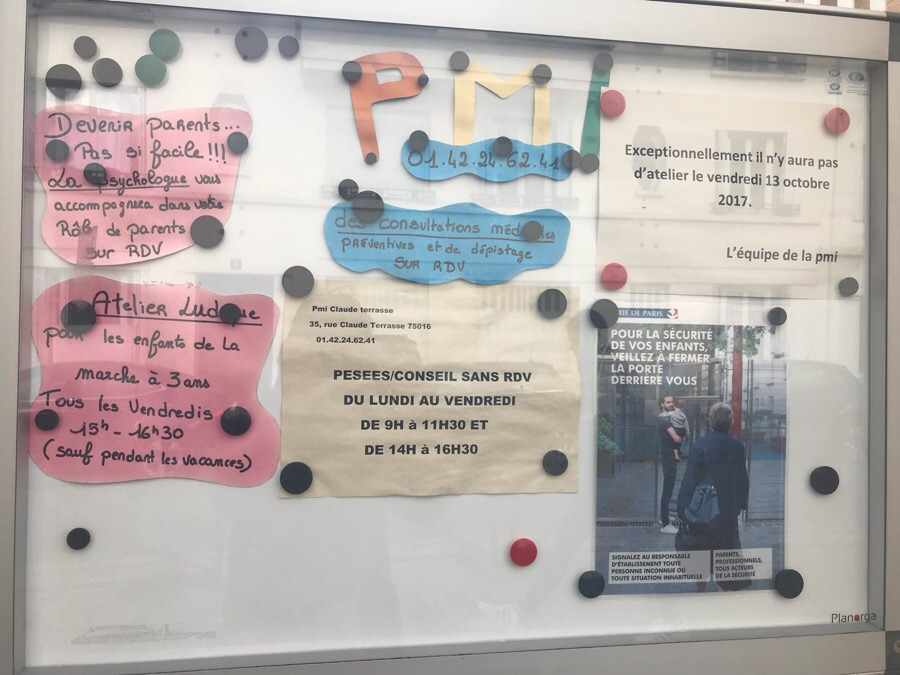 PMI
01.42.24.62.41
Devenir parents...
Pas si facile !!!
La psychologue vous
accompagnera dans votre
Rôle de parents
sur RDV
des consultations médicales
PRÉVENTIVES et de dépistage
SUR RDV
Exceptionnellement il n'y aura pas
d'atelier le vendredi 13 octobre
2017.
L'équipe de la pmi
Atelier Ludique
pour les enfants de La
marche à 3 ans
Tous les Vendredis
15h - 16h30
(sauf pendant les vacances)
Pmi Claude terrasse
35, rue Claude Terrasse 75016
01.42.24.62.41
PESEES/CONSEIL SANS RDV
DU LUNDI AU VENDREDI
DE 9H à 11H30 ET
DE 14H à 16H30
RIE DE PARIS
POUR LA SÉCURITÉ
DE VOS ENFANTS,
VEILLEZ À FERMER
LA PORTE
DERRIÈRE VOUS
SIGNALEZ AU RESPONSABLE
D'ÉTABLISSEMENT TOUTE
PERSONNE INCONNUE OU
TOUTE SITUATION INHABITUELLE
PARENTS,
PROFESSIONNELS,
TOUS ACTEURS
DE LA SÉCURITÉ
Planorga